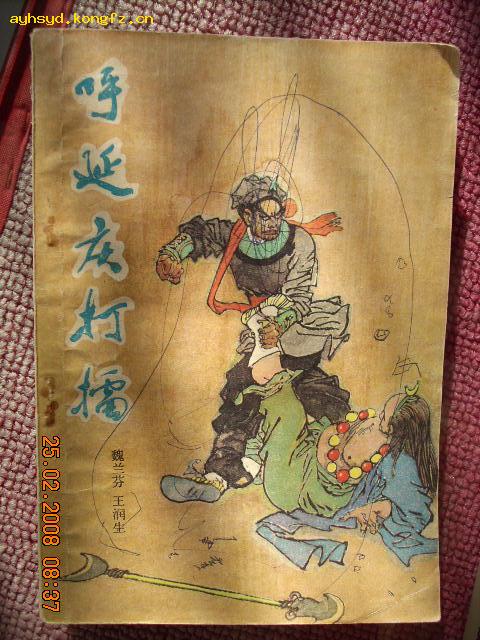 ayhsyd.kongfz.cn
呼延庆打擂
魏兰芬 王润生
25.02.2008 08:37